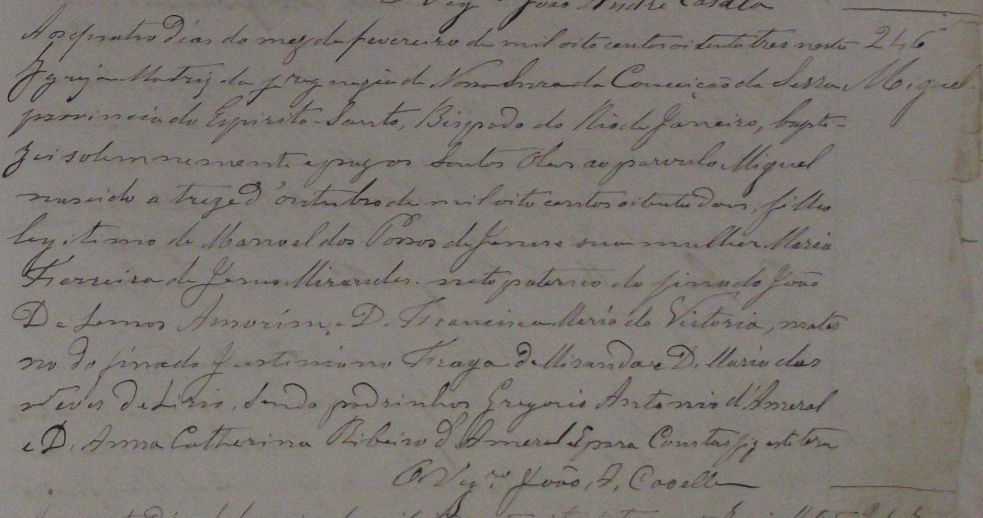 O Vigr.º João André Casella
Aos quatro dias do mez de fevereiro de mil oito centos oitenta tres nesta 246
Igreja Matriz da freguezia de Nossa Snra da Conceição da Serra Miguel
provincia do Espirito-Santo, Bispado do Rio de Janeiro, bapti-
zei solemnemente e puz os Santos Oleos ao parvulo Miguel
nascido a treze d'outubro de mil oito centos oitenta dous, filho
legitimo de Manoel dos Passos de Jesus e sua mulher Maria
Ferreira de Jesus Miranda. neto paterno do finado João
De Lemos Amorim, e D. Francisca Maria da Victoria, mater
no do finado Justiniano Fraga de Miranda e D. Maria das
Neves de Lirio, Sendo padrinhos Gregorio Antonio d'Ameral
e D. Anna Catherina Ribeiro d'Ameral E para Constar fiz este tera
O Vigr.º João A. Casella